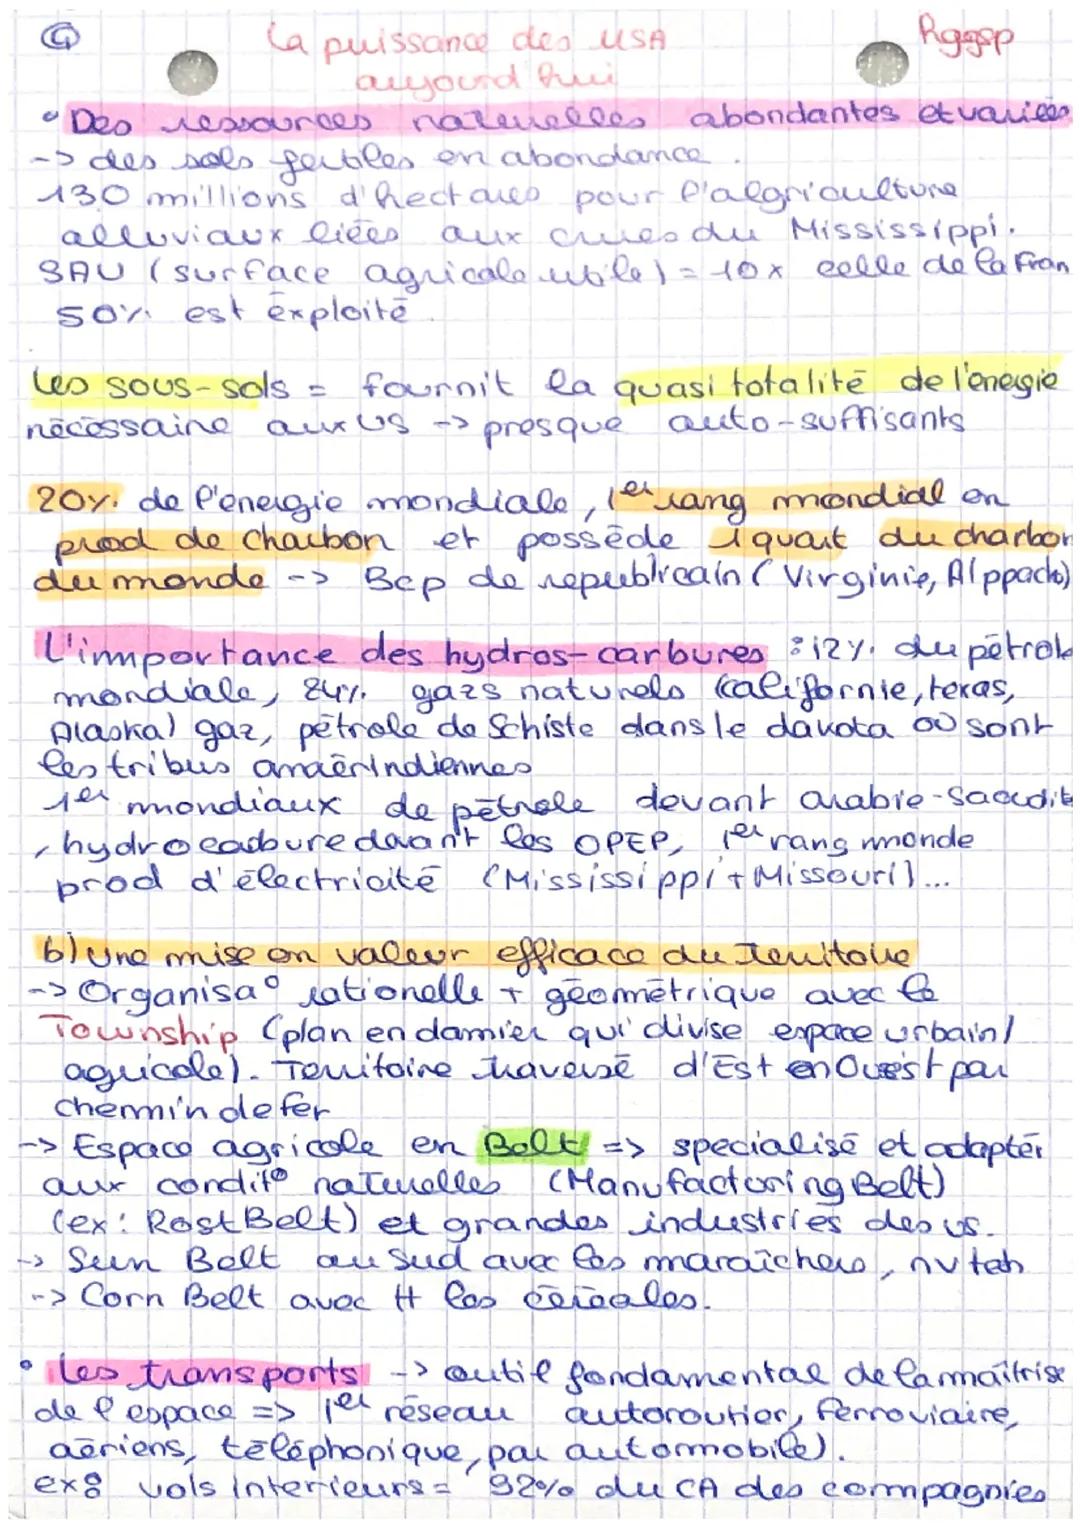 La puissance des USA
Hggsp
aujourd'hui
• Des ressources naturelles abondantes et variées
-> des sols fertiles en abondance.
130 millions d'hectares pour l'algriculture
alluviaux liées aux crues du Mississippi.
SAU (surface agricole utile) = 10x celle de la Fran
50% est exploité.
les sous-sols = fournit la quasi totalité de l'énergie
nécessaire aux US -> presque auto-suffisants
20% de l'énergie mondiale, 1er rang mondial en
prod de charbon et possède 1 quart du charbon
du monde -> Bcp de republicain (Virginie, Alppach)
L'importance des hydros-carbures : 12% du pétrole
mondiale, 24% gazs naturels (californie, texas,
Alaska) gaz, pétrole de Schiste dans le dakota où sont
les tribus amaérindiennes
1er mondiaux de pétrole devant arabie-Saoudite
, hydrocarbure devant les OPEP, 1er rang monde
prod d'électricité (Mississippi + Missouri)...
b) Une mise en valeur efficace du Territoire
-> Organisa° rationelle + géométrique avec le
Township (plan en damier qui divise espace urbain/
agricole). Territoire traversé d'Est en Ouest par
chemin de fer
-> Espace agricole en Belt => specialisé et adapter
aux condit° naturelles (Manufactoring Belt)
(ex : Rost Belt) et grandes industries des us.
-> Sun Belt au Sud avec les maraîchers, nv teh
-> Corn Belt avec tt les céréales.
• les transports -> outil fondamental de la maîtrise
de l'espace => 1er réseau autoroutier, ferroviaire,
aériens, téléphonique, par automobile).
ex : vols interieurs = 92% du CA des compagnies